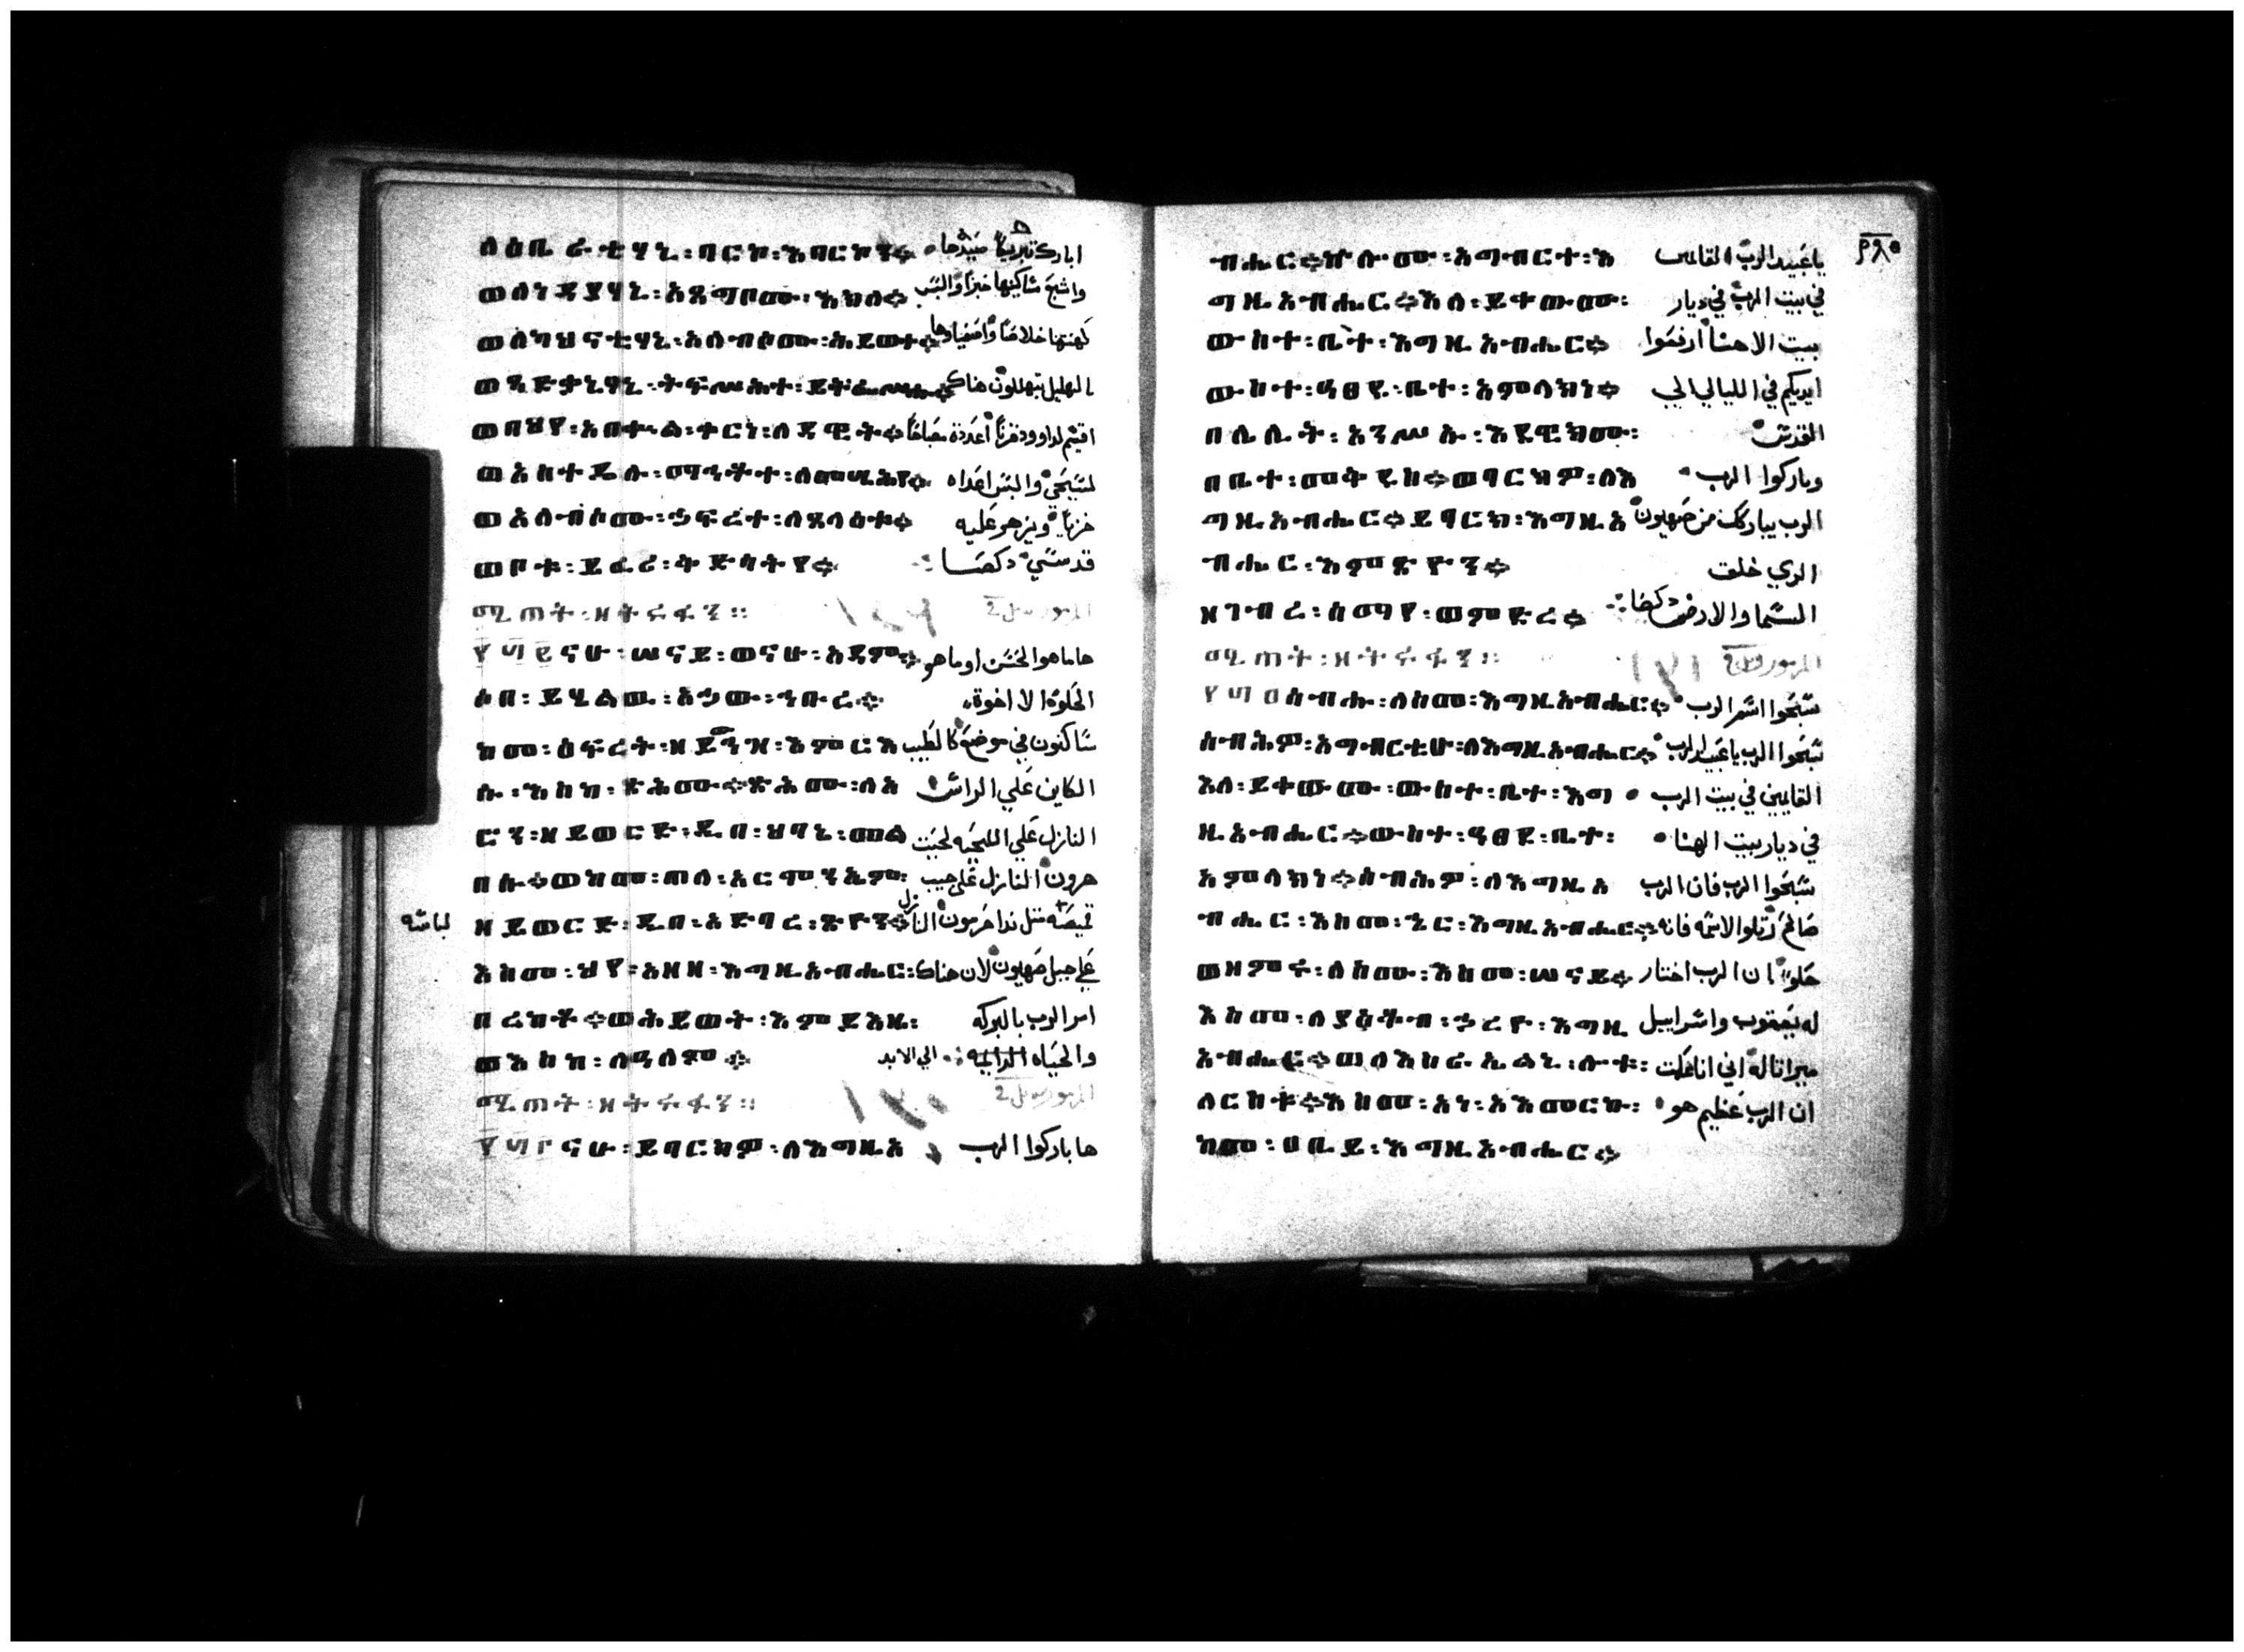 ለዕቤራቲሃኒ፡ባርኮ፡እባርኮን። ابارك تبريكا صيدها
ወለነዳያሃኒ፡አጸግቦሙ፡እክለ። واشبع مساكينها خبزا والبس
ወለካህናቲሃኒ፡አለብሶሙ፡ሕይወተ። كهنتها خلاصا واصفياوها
ወጻድቃኒሃኒ፡ትፍሥሕተ፡ይትፌሥሑ። تهليل يتهللون هناك
ወበህየ፡አበቍል፡ቀርነ፡ለዳዊት። اقيم لداوود قرنا اعددت مصباحا
ወአስተዴሉ፡ማኅቶተ፡ለመሲሕየ። لمسيحي والبس اعداه
ወአለብሶሙ፡ኃፍረተ፡ለጸላዕቱ። خزيا ويزهر عليه
ወቦቱ፡ይፈሪ፡ቅድሳትየ። قدسي
ሚጠት፡ዘትፍፋኝ። المزمور
ናሁ፡ሠናይ፡ወናሁ፡አዳም። ها ما هو الحسن او ما هو
ሶበ፡ይሄልው፡አኃው፡ኅቡረ። الحلو الا اخوة
ከመ፡ዕፍረት፡ዘይውኅዝ፡እምርእ ساكنون في موضع كالطيب
ሱ፡እስከ፡ጽሕሙ።ጽሕሙ፡ለአ الكاين علي الراس
ሮን፡ዘይወርድ፡ዲበ፡ህባኒ፡መል النازل علي اللحيه لحيت
በሱ።ወከመ፡ጠለ፡አርሞንኤም፡ هرون النازل علي جيب
ዘይወርድ፡ዲበ፡አድባረ፡ጽዮን። قميصه مثل ندا حرمون النازل لباسه
እስመ፡ህየ፡አዘዘ፡እግዚአብሔር፡ علي جبل صهيون لان هناك
በረከቶ።ወሕይወት፡እምይእዜ፡ امر الرب بالبركه
ወእስከ፡ለዓለም። والحياه الدايمه الي الابد
ሚጠት፡ዘትፍፋኝ። المزمور
ናሁ፡ይባርክዎ፡ለእግዚአ ها باركوا الرب
ብሔር።ኵሎሙ፡አግብርተ፡እ يا عبيد الرب القايمين
ግዚአብሔር።እለ፡ይቀውሙ፡ في بيت الرب في ديار
ውስተ፡ቤተ፡እግዚአብሔር። بيت الاهنا ارفعوا
ውስተ፡ዓፀደ፡ቤተ፡አምላክነ። ايديكم في الليالي الي
በሌሊት፡አንሥኡ፡እደዊክሙ፡ القدس
በቤተ፡መቅደስ።ወባርክዎ፡ለእ وباركوا الرب
ግዚአብሔር።ይባርክ፡እግዚአ الرب يباركك من صهيون
ብሔር፡እምጽዮን። الذي خلق
ዘገብረ፡ሰማየ፡ወምድረ። السما والارض
ሚጠት፡ዘትፍፋኝ። المزمور
ሰብሑ፡ለስመ፡እግዚአብሔር። سبحوا اسم الرب
ሰብሕዎ፡አግብርቲሁ፡ለእግዚአብሔር። سبحوا الرب يا عبيد الرب
እለ፡ይቀውሙ፡ውስተ፡ቤተ፡እግ القايمين في بيت الرب
ዚአብሔር።ውስተ፡ዓፀደ፡ቤተ፡ في ديار بيت الهنا
አምላክነ።ሰብሕዎ፡ለእግዚአ سبحوا الرب فان الرب
ብሔር፡እስመ፡ኄር፡እግዚአብሔር። صالح رتلوا لاسمه فانه
ወዘምሩ፡ለስሙ፡እስመ፡ሠናይ። حلو ان الرب اختار
እስመ፡ለያዕቆብ፡ኃረዮ፡እግዚ له يعقوب واسراييل
አብሔር።ወለእስራኤልኒ፡ሎቱ፡ ميراثا له اني انا علمت
ለርስቱ።እስመ፡አነ፡አእመርኩ፡ ان الرب عظيم هو
ከመ፡ዐቢይ፡እግዚአብሔር።